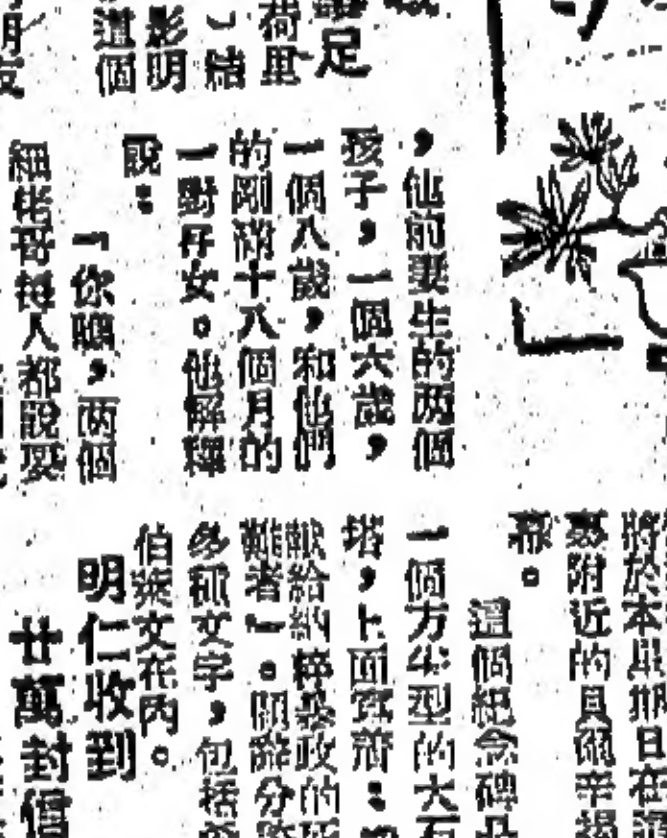 足
荷里
︶結
影明
這個
明友
，他前妻生的两個
孩子，一個六歲，
一個八歲，和他們
的剛滿十八個月的
一對仔女。他解釋
說：
「你瞧，两個
人都說要
將於本星期日在
裏附近的貝爾辛
幕。
這個紀念碑
一個方尖型的大石
塔，上面寫着：
獻給納粹暴政的
難者」。
多種文字，包括
伯來文在內。
明仁收到
廿萬封信